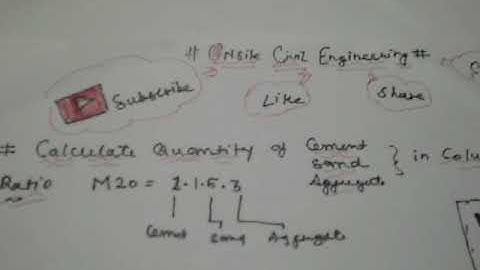 # Onsite Civil Engineering #
Subscribe
Like
Share
# Calculate Quantity of Cement
Sand
Aggregate } in Colu
Ratio M20 = 1.1.5.3
Cement Sand Aggregate